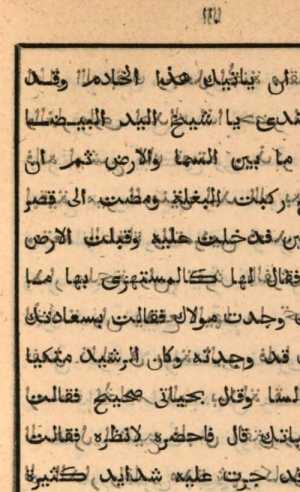 ان ياتيك هذا الخادم وقد
يا شيخ اليد البيضا
ما بين السما والارض ثم ان
ركبت البغلة ومضت الى قصر
فدخلت عليه وقبلت الارض
فقال لها كالمستهزى بها ما
وجدت مولاك فقالت بسعادتك
قد وجدته وكان الرشيد متكيا
وقال بحياتى صحيح فقالت
قال فاحضره لانظره فقالت
جرت عليه شدايد كثيرة